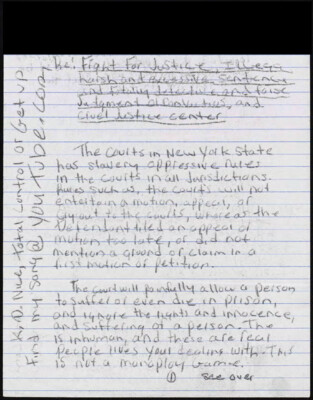 Re: Fight For Justice, Illegal
harsh and excessive sentence
and fatally defective and false
Judgment of Conviction, and
Cruel Justice center
The Courts in New York State
has slavery oppressive rules
in the courts in all Jurisdictions.
Rules such as, the courts will not
entertain a motion, appeal, or
cry out to the courts, whereas the
Defendant filed an appeal or
motion too late, or did not
mention a ground or claim in a
first motion or petition.
The court will painfully allow a person
to suffer or even die in prison,
and ignore the rights and innocence,
and suffering of a person. This
is inhuman, and these are real
people lives your dealing with. This
is not a monoploy Game.
① see over
total Control or Get up
find my song @ YouTube.com,